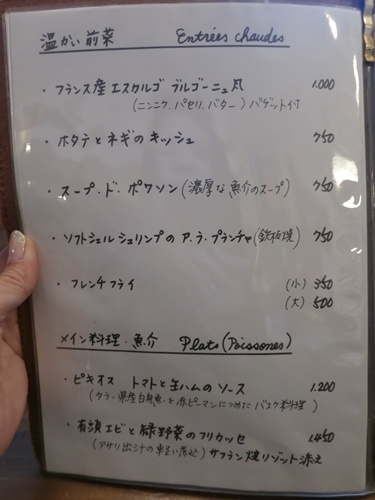 温かい前菜 Entrées chaudes
・フランス産エスカルゴ ブルゴーニュ風 1.000
(ニンニク.パセリ.バター)バゲット付
・ホタテとネギのキッシュ 750
・スープ.ド.ポワソン(濃厚な魚介のスープ) 750
・ソフトシェルシュリンプのア.ラ.プランチャ(鉄板焼) 750
・フレンチフライ (小) 350
(大) 500
メイン料理.魚介 Plats(Poissones)
・ピキオス トマトと生ハムのソース 1.200
(タラ.県産白身魚を赤ピーマンにつめたバスク料理)
・有頭エビと緑野菜のフリカッセ 1,450
(アサリ出汁の軽い煮込)サフラン焼リゾット添え